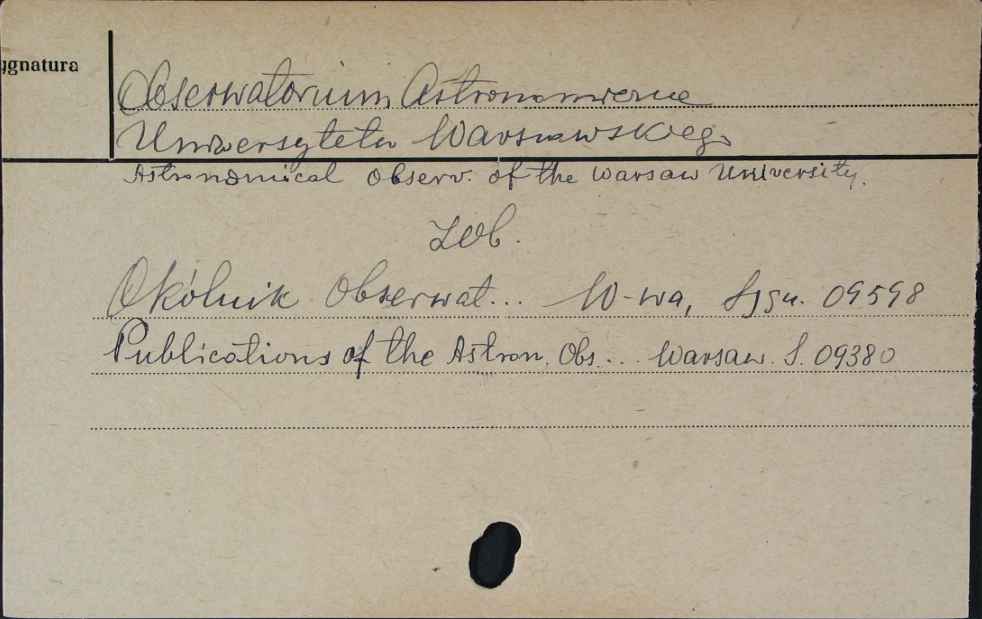 ygnatura
Obserwatorium Astronomiczne
Uniwersytetu Warszawskiego
Astronomical Observ. of the Warsaw University.
Zob.
Okólnik Obserwat... W-wa, Sygn. 09598
Publications of the Astron. Obs... Warsaw. S. 09380